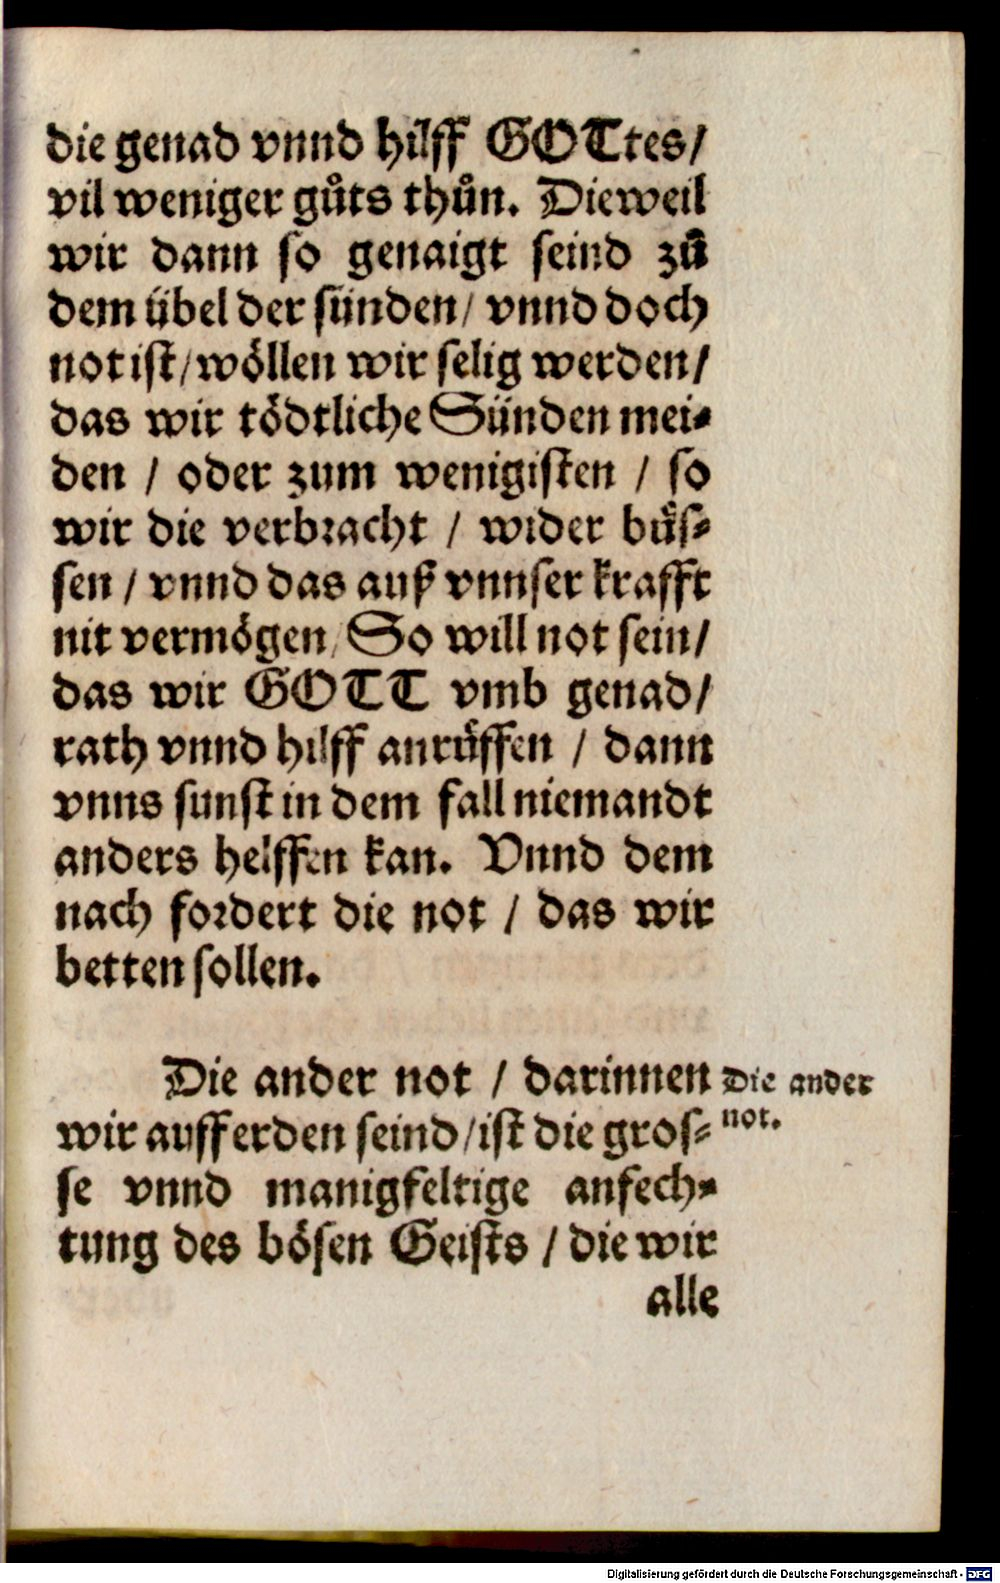 die genad vnnd hilff GOTtes/
vil weniger gůts thůn. Dieweil
wir dann so genaigt seind zů
dem übel der sünden/ vnnd doch
not ist/ wöllen wir selig werden/
das wir tödtliche Sünden mei⸗
den / oder zum wenigisten / so
wir die verbracht / wider büs⸗
sen / vnnd das auß vnnser krafft
nit vermögen/ So will not sein/
das wir GOTT vmb genad/
rath vnnd hilff anrüffen / dann
vnns sunst in dem fall niemandt
anders helffen kan. Vnnd dem
nach fordert die not / das wir
betten sollen.
Die ander not / darinnen
wir auff erden seind/ ist die gros⸗
se vnnd manigfeltige anfech⸗
tung des bösen Geists / die wir
alle
Die ander
not.
Digitalisierung gefördert durch die Deutsche Forschungsgemeinschaft - DFG